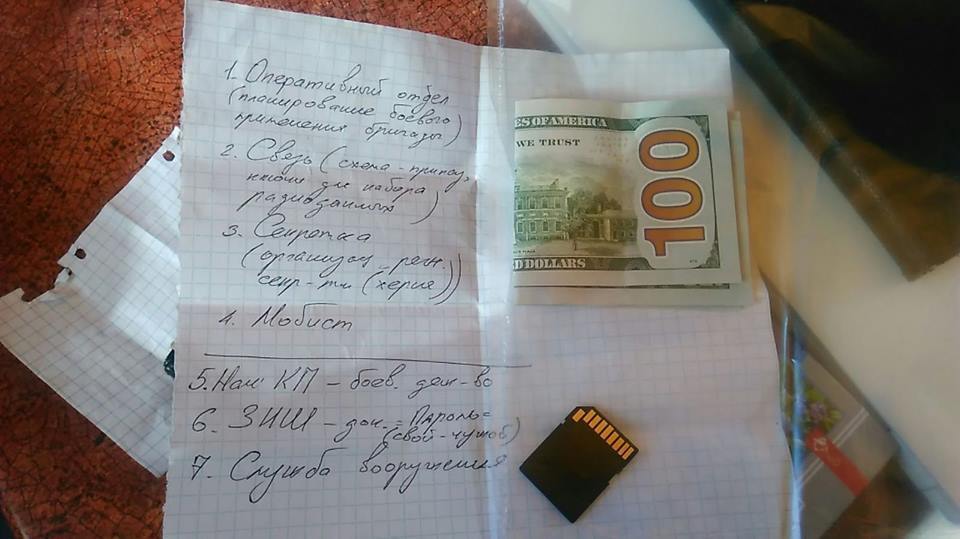 1. Оперативный отдел
(планирование боевого
применения бригады)
2. Связь (схема-
ключи для набора
радиоданных)
3. Секретка
(организац.
секр-ти (херие))
4. Мобист
5. Нач КП - боев. деж-во
6. ЗНШ - док. = Пароль =
(свой-чужой)
7. Служба вооружения
ES OF AMERICA
WE TRUST
100
D DOLLARS